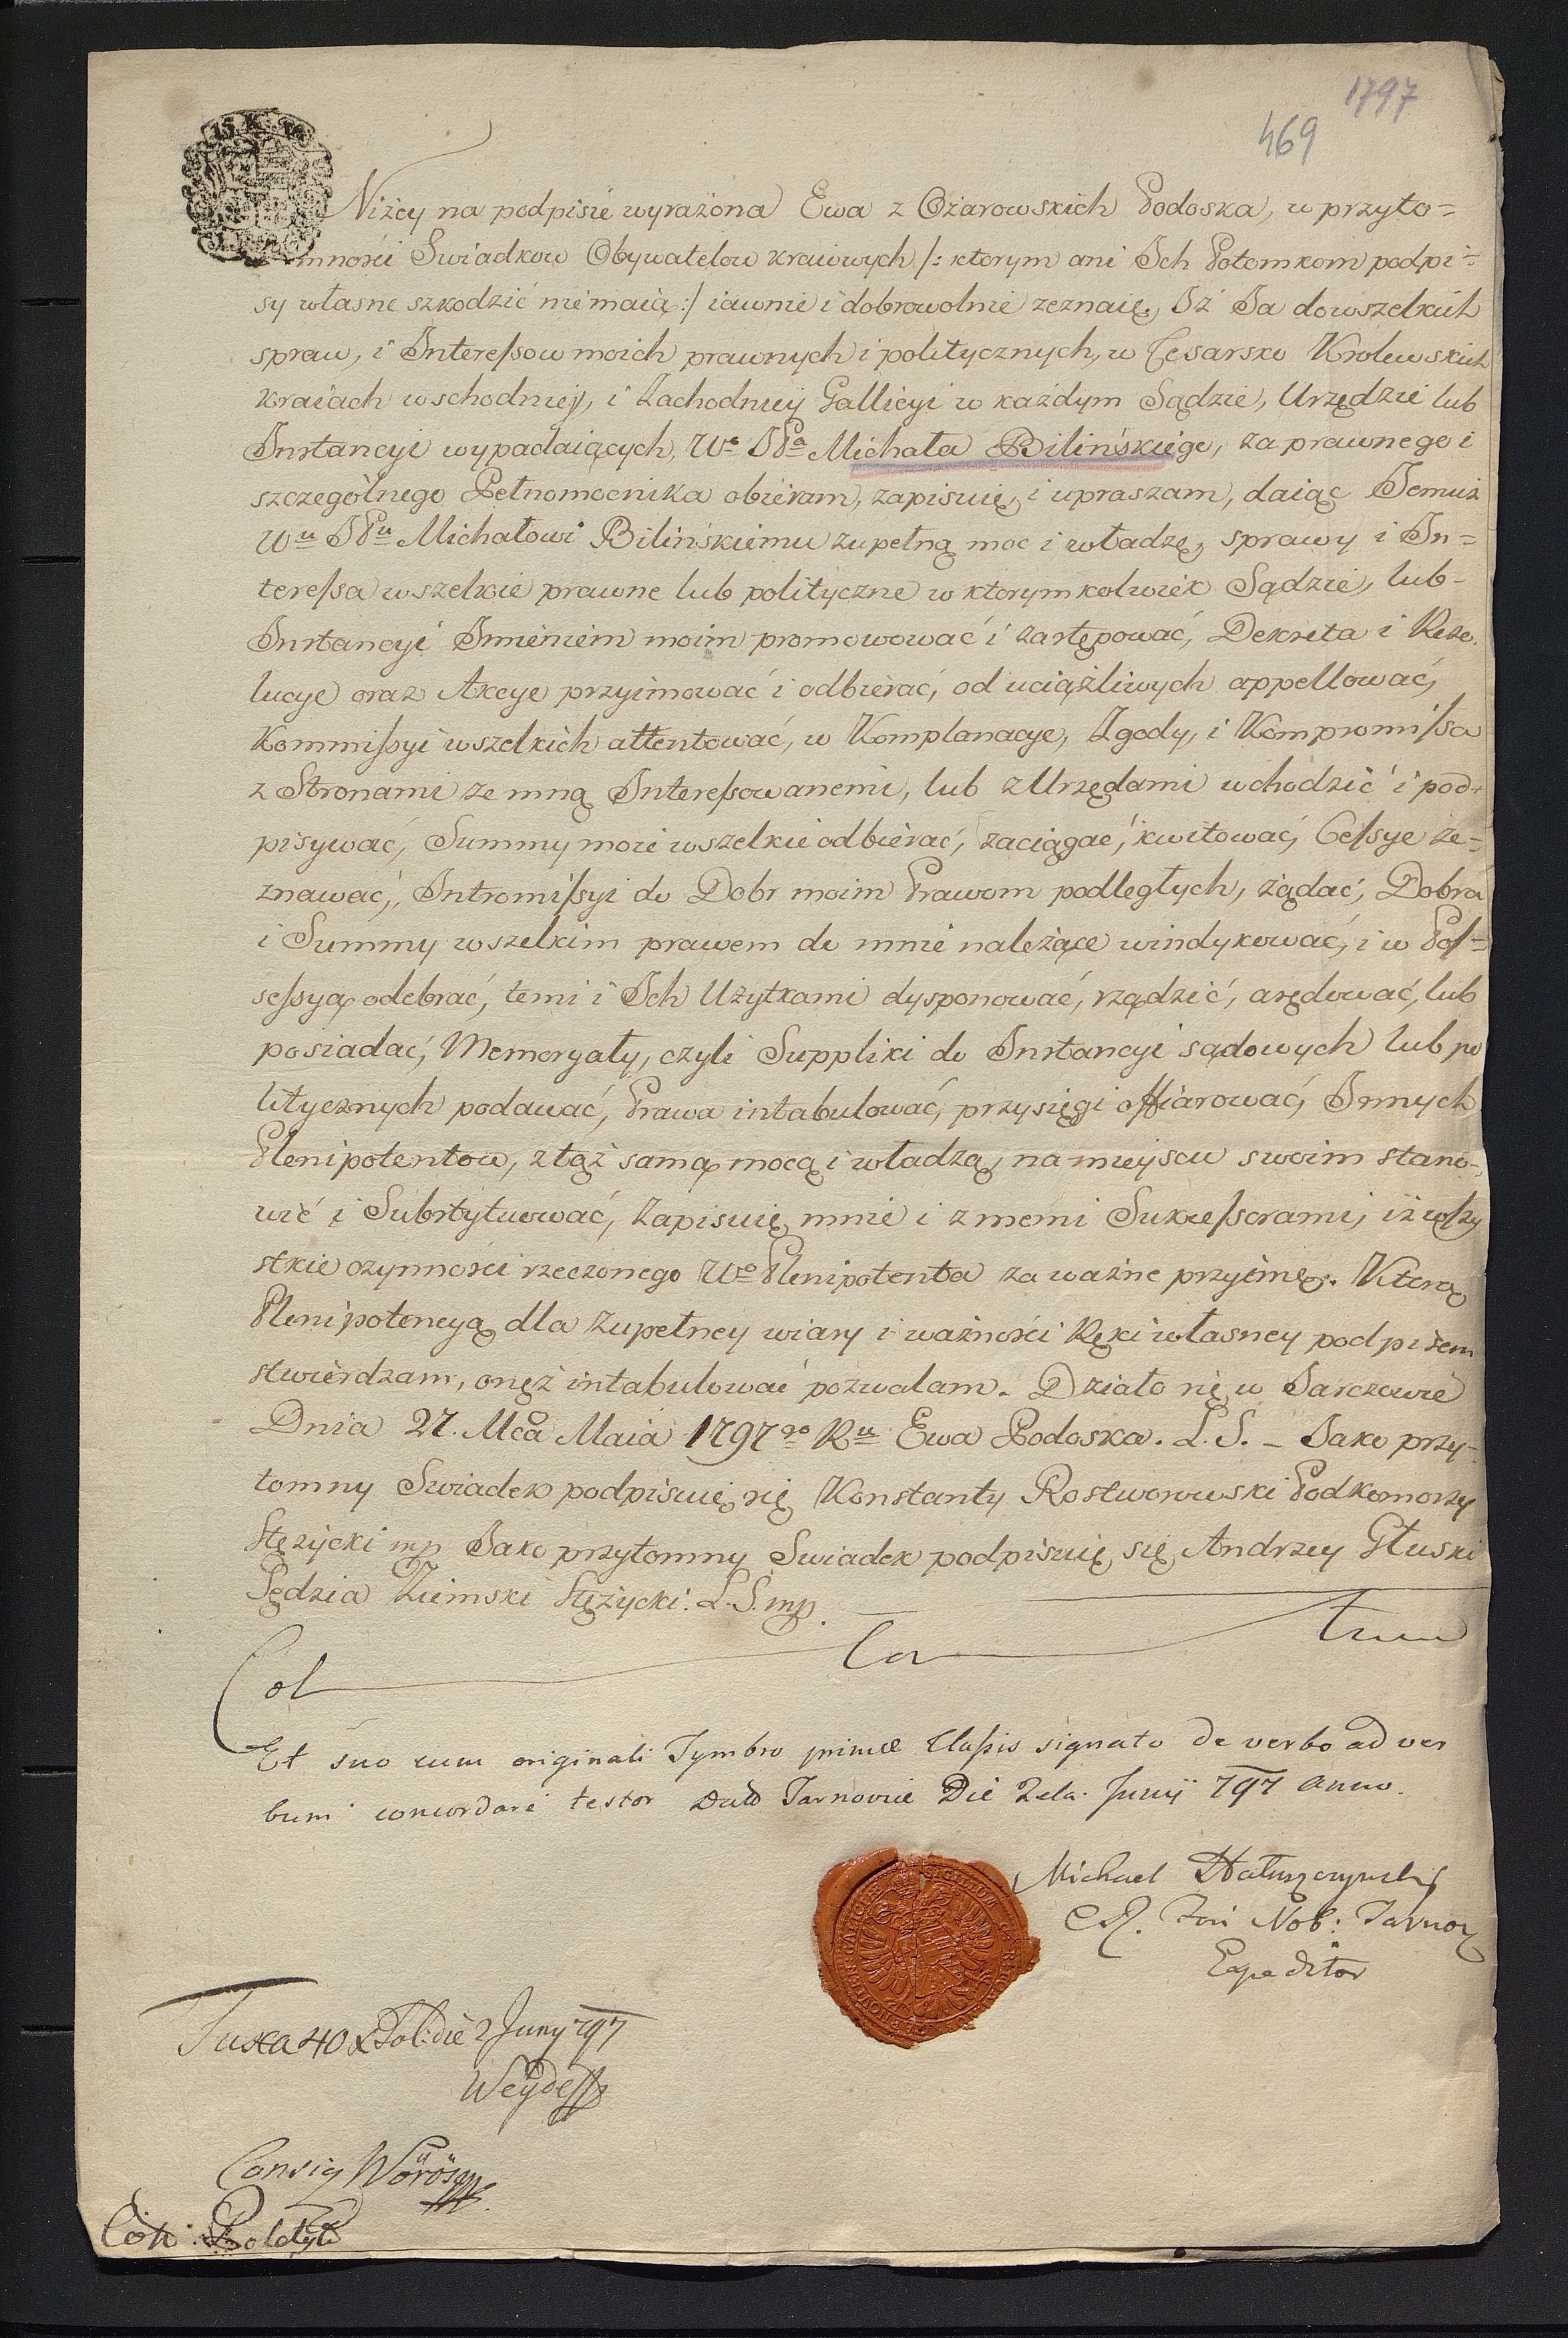 1797
469
15. K.
Niżey na podpisie wyrażona Ewa z Ożarowskich Podoska, w przyto=
mności Swiadkow Obywatelow kraiowych /: ktorym ani Ich Potomkom podpi=
sy własne szkodzić nie maią :/ iawnie i dobrowolnie zeznaię, Iż Ja do wszelkich
spraw, i Interessow moich prawnych i politycznych, w Cesarsko Krolewskich
kraiach wschodniey, i Zachodniey Gallicyi w każdym Sądzie, Urzędzie lub
Instancyi wypadaiących, Wo JPa Michała Bilińskiego, za prawnego i
szczególnego Pełnomocnika obieram, zapisuię, i upraszam, daiąc Jemuż
Wu JPu Michałowi Bilińskiemu zupełną moc i władzę, sprawy i In=
teressa wszelkie prawne lub polityczne w ktorymkolwiek Sądzie, lub-
Instancyi Imieniem moim promowować i zastępować, Dekreta i Rezo-
lucye oraz Akcye przyimować i odbierać, od uciążliwych appellować,
Kommissyi wszelkich attentować, w Komplanacye, Zgody, i Kompromissa
z Stronami ze mną Interessowanemi, lub z Urzędami wchodzić i pod=
pisywać, Summy moie wszelkie odbierać, zaciągać, kwitować, Cessye ze=
znawać, Intromissyi do Dobr moim Prawom podległych, żądać, Dobra
i Summy wszelkim prawem do mnie należące windykować, i w Pos=
sessyą odebrać, temi i Ich Użytkami dysponować, rządzić, arędować, lub
posiadać, Memoryały, czyli Suppliki do Instancyi sądowych lub po
litycznych podawać, Prawa intabulować, przysięgi offiarować, Innych
Plenipotentow, z tąż samą mocą i władzą, na mieyscu swoim stano-
wić i Substytuować, zapisuię mnie i z memi Sukcessorami, iż wszy
stkie czynności rzeczonego Wo Plenipotenta za ważne przyimę. Ktorą
Plenipotencyą dla zupełney wiary i ważności Ręki własney podpisem
stwierdzam, onęż intabulować pozwalam. Działo się w Jarczowie
Dnia 27. Mca Maia 1797go Ru Ewa Podoska. L. S. – Jako przy-
tomny Swiadek podpisuię się Konstanty Rostworowski Podkomorzy
Stężycki mp Jako przytomny Swiadek podpisuię się Andrzey Głuski
Sędzia Ziemski Stężycki. L. S. mp.
Col la tum
Et suo cum originali Tymbro primæ Classis signato de verbo ad ver
bum concordare testor Dato Tarnoviæ Die 2da Junii 797 Anno.
Michael
C. R. Fori Nob: Tarnov
Expeditor
Taxa 40 x Sol: die 2 Juny 797
Weyde
Consig Vörös